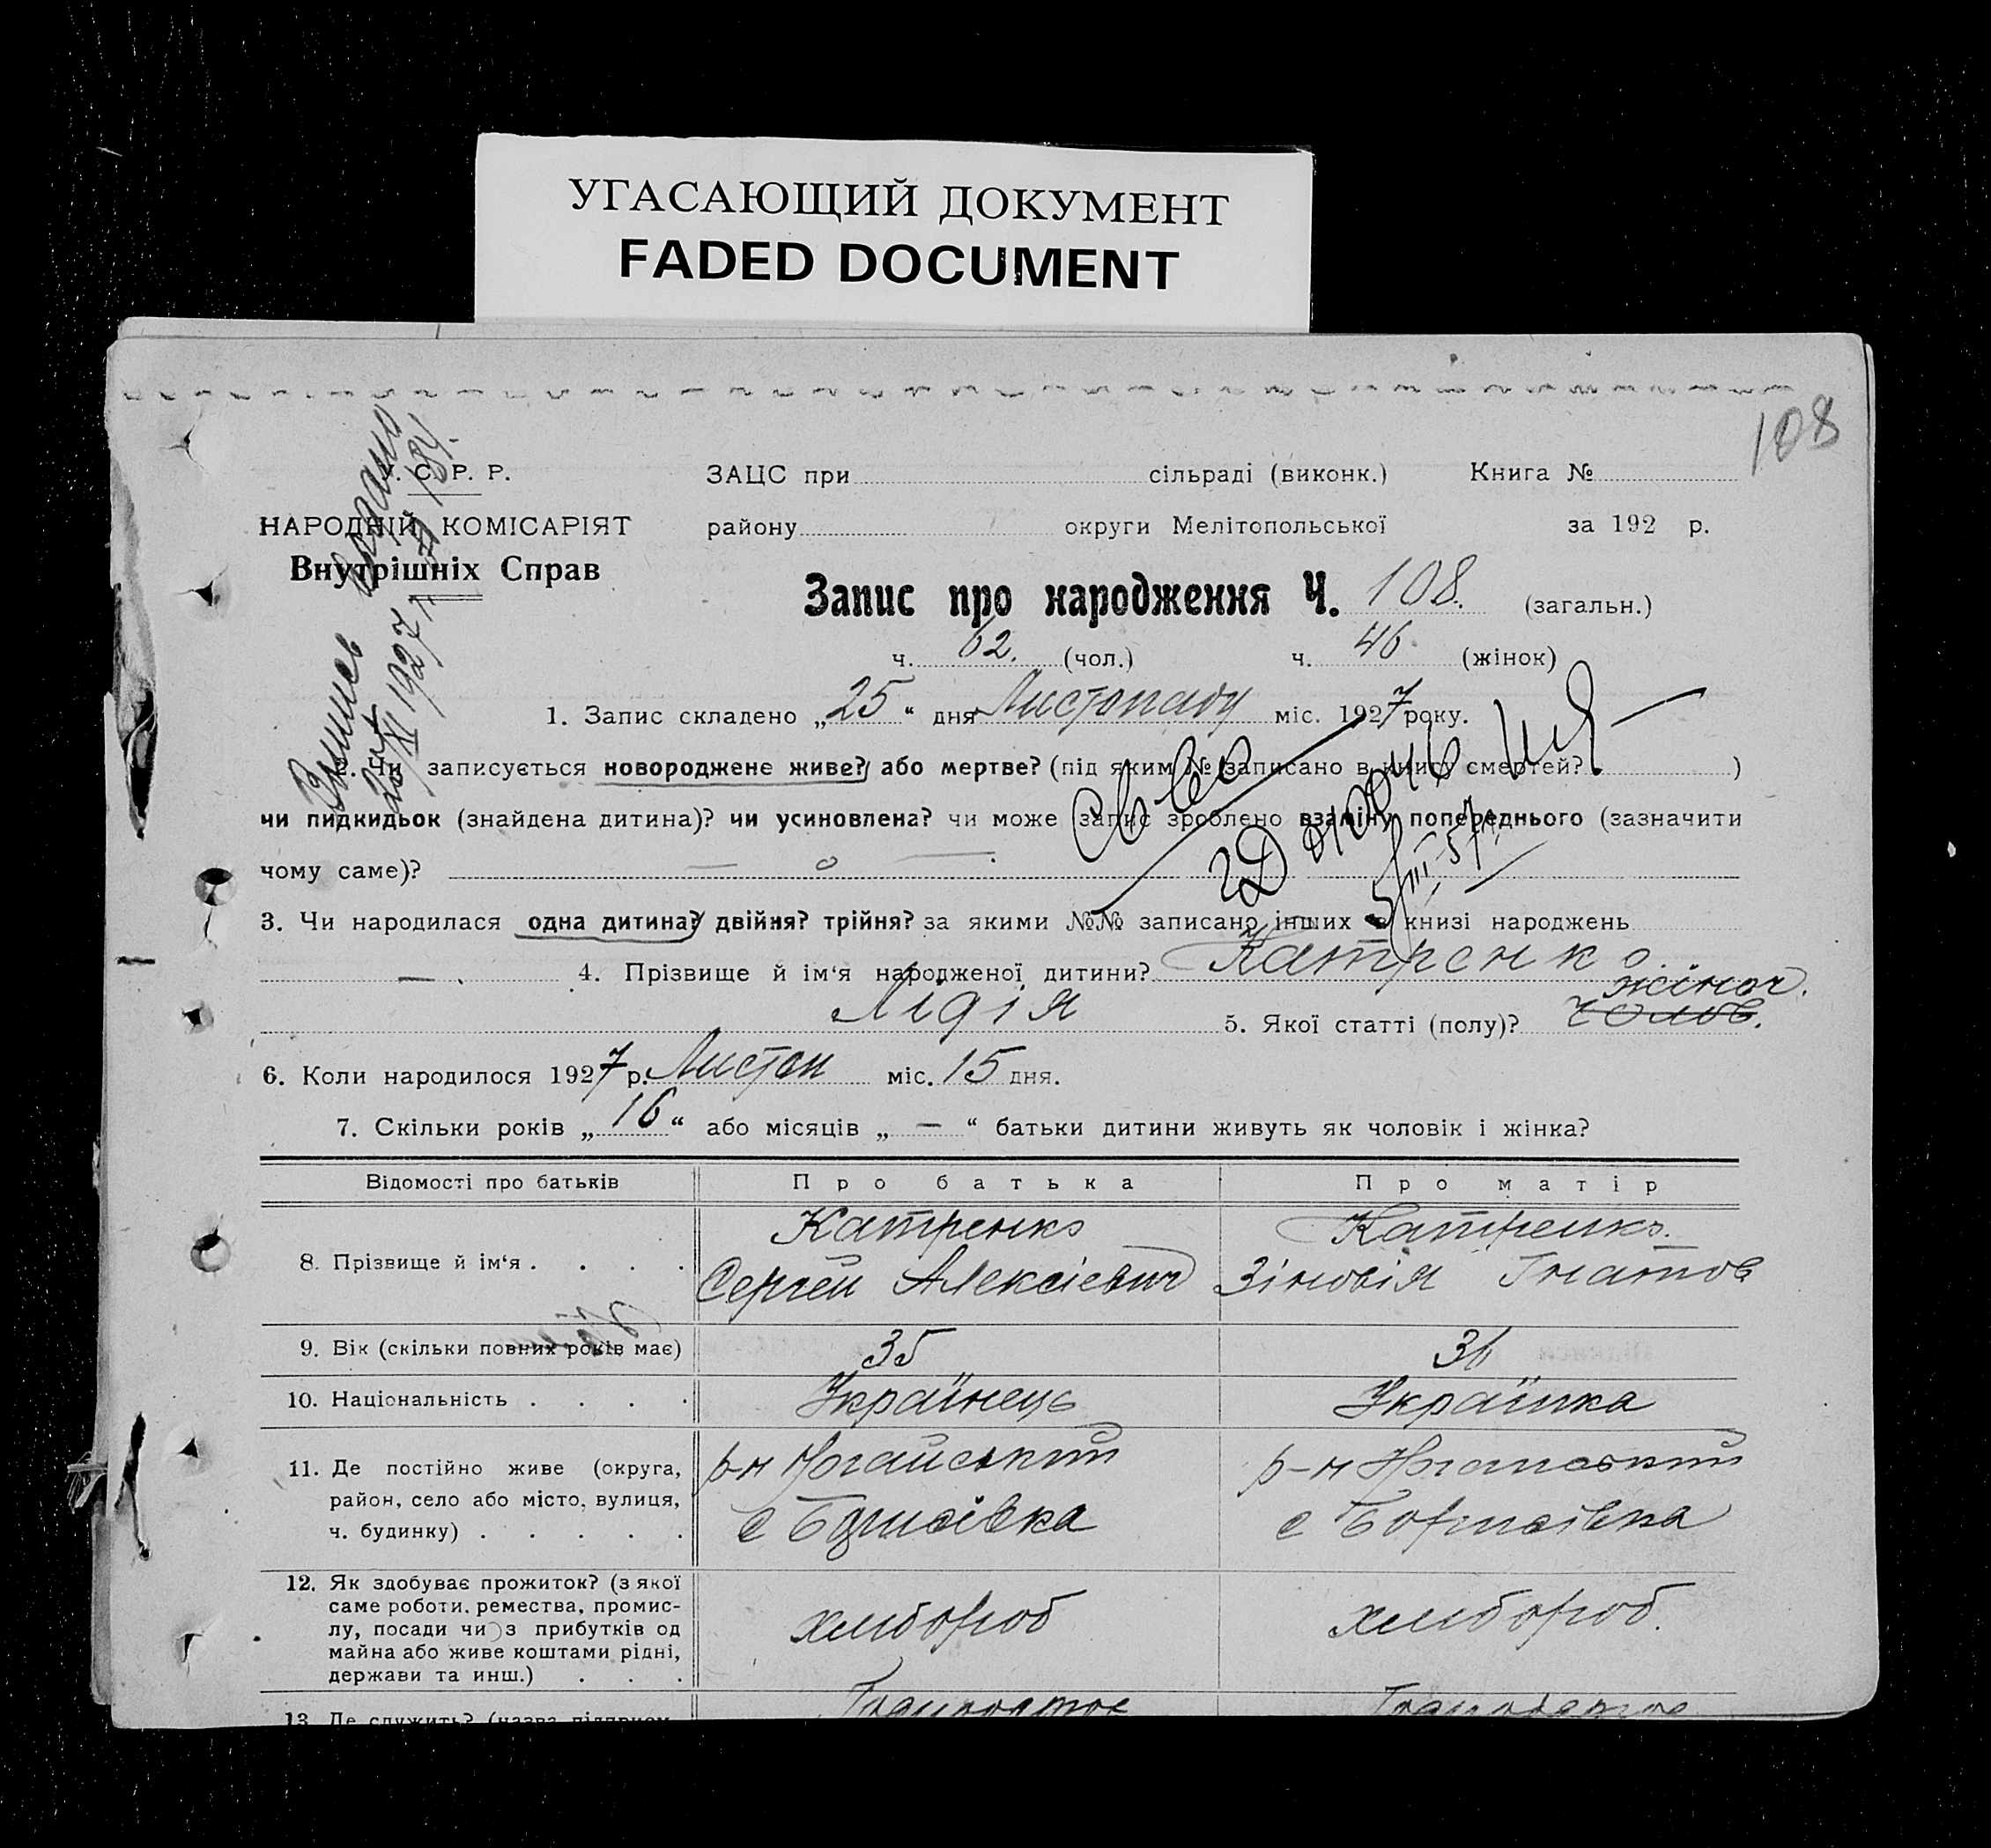 УГАСАЮЩИЙ ДОКУМЕНТ
FADED DOCUMENT
108
У. С. Р. Р.
НАРОДНІЙ КОМІСАРІЯТ
Внутрішніх Справ
ЗАЦС при сільраді (виконк.) Книга №
району округи Мелітопольської за 192 р.
Запис про народження Ч. 108. (загальн.)
ч. 62. (чол.) ч. 46 (жінок)
1. Запис складено „25“ дня Листопаду міс. 1927 року.
2. Чи записується новороджене живе? або мертве? (під яким № записано в книгу смертей? )
чи підкидьок (знайдена дитина)? чи усиновлена? чи може запис зроблено взамін попереднього (зазначити
чому саме)?
3. Чи народилася одна дитина? двійня? трійня? за якими №№ записано інших в книзі народжень
— . 4. Прізвище й ім‘я народженої дитини? Катренко
Лідія 5. Якої статті (полу)? чолов. жіноч.
6. Коли народилося 1927 р. Листоп міс. 15 дня.
7. Скільки років „16“ або місяців „—“ батьки дитини живуть як чоловік і жінка?
Відомості про батьків Про батька Про матір
8. Прізвище й ім‘я . . . . Катренко Сергей Алексіевич Катренко Зіновія Гнатов
9. Вік (скільки повних років має) 35 36
10. Національність . . . . Українець Українка
11. Де постійно живе (округа, район, село або місто, вулиця, ч. будинку) . . . . . р-н Ногайський с Борисівка р-н Ногайський с Борисівка
12. Як здобуває прожиток? (з якої саме роботи, ремества, промислу, посади чи з прибутків од майна або живе коштами рідні, держави та инш.) . . . хлибороб хлибороб.
13. Де служить? (назва підприєм-
Выпись
XI 1927